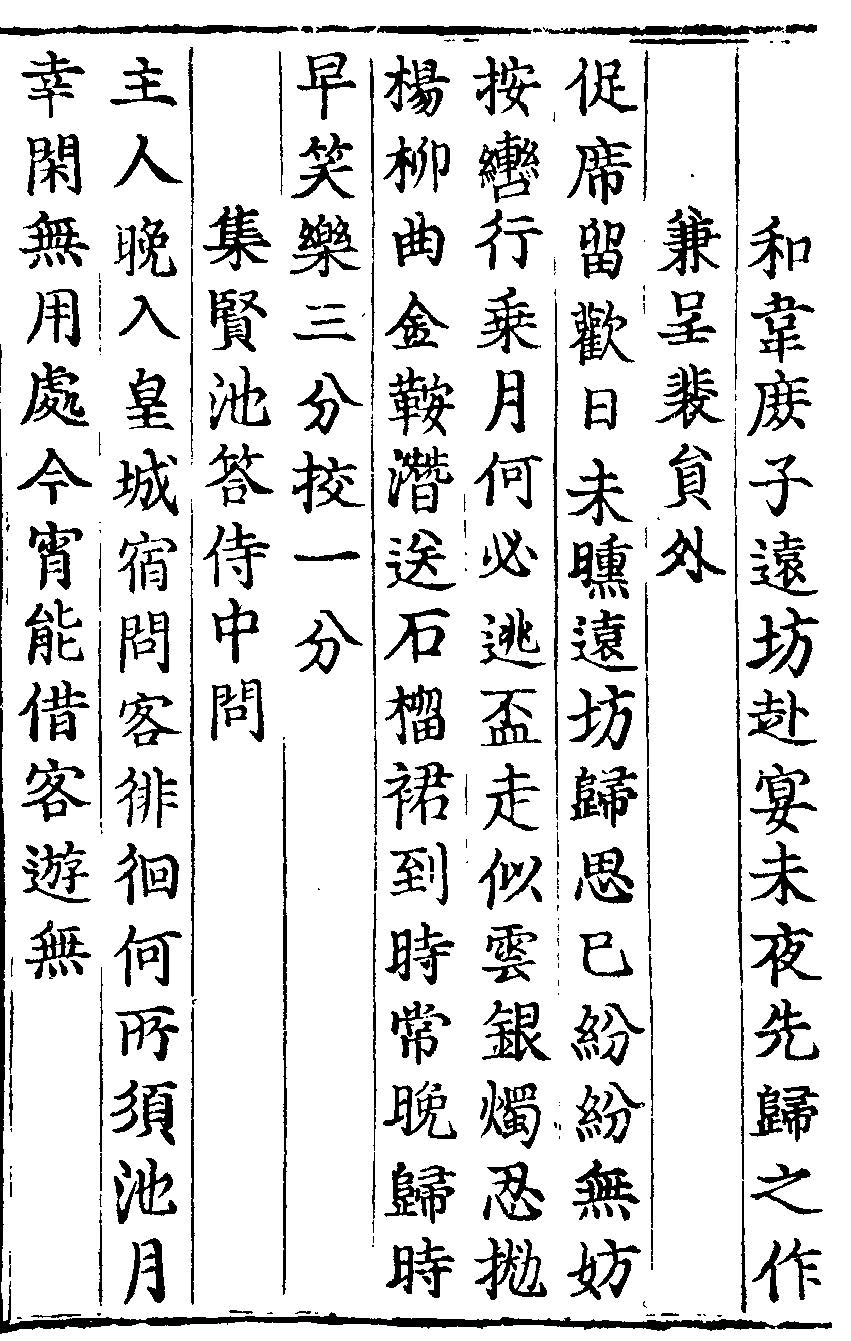 和韋庻子遠坊赴宴未夜先歸之作
兼呈裴貟外
促席留歡日未曛遠坊歸思已紛紛無妨
按轡行乗月何必逃盃走似雲銀燭忍拋
楊柳曲金鞍潛送石榴裙到時常晚歸時
早笑樂三分挍一分
集賢池答侍中問
主人晚入皇城宿問客徘徊何所須池月
幸閑無用處今宵能借客遊無